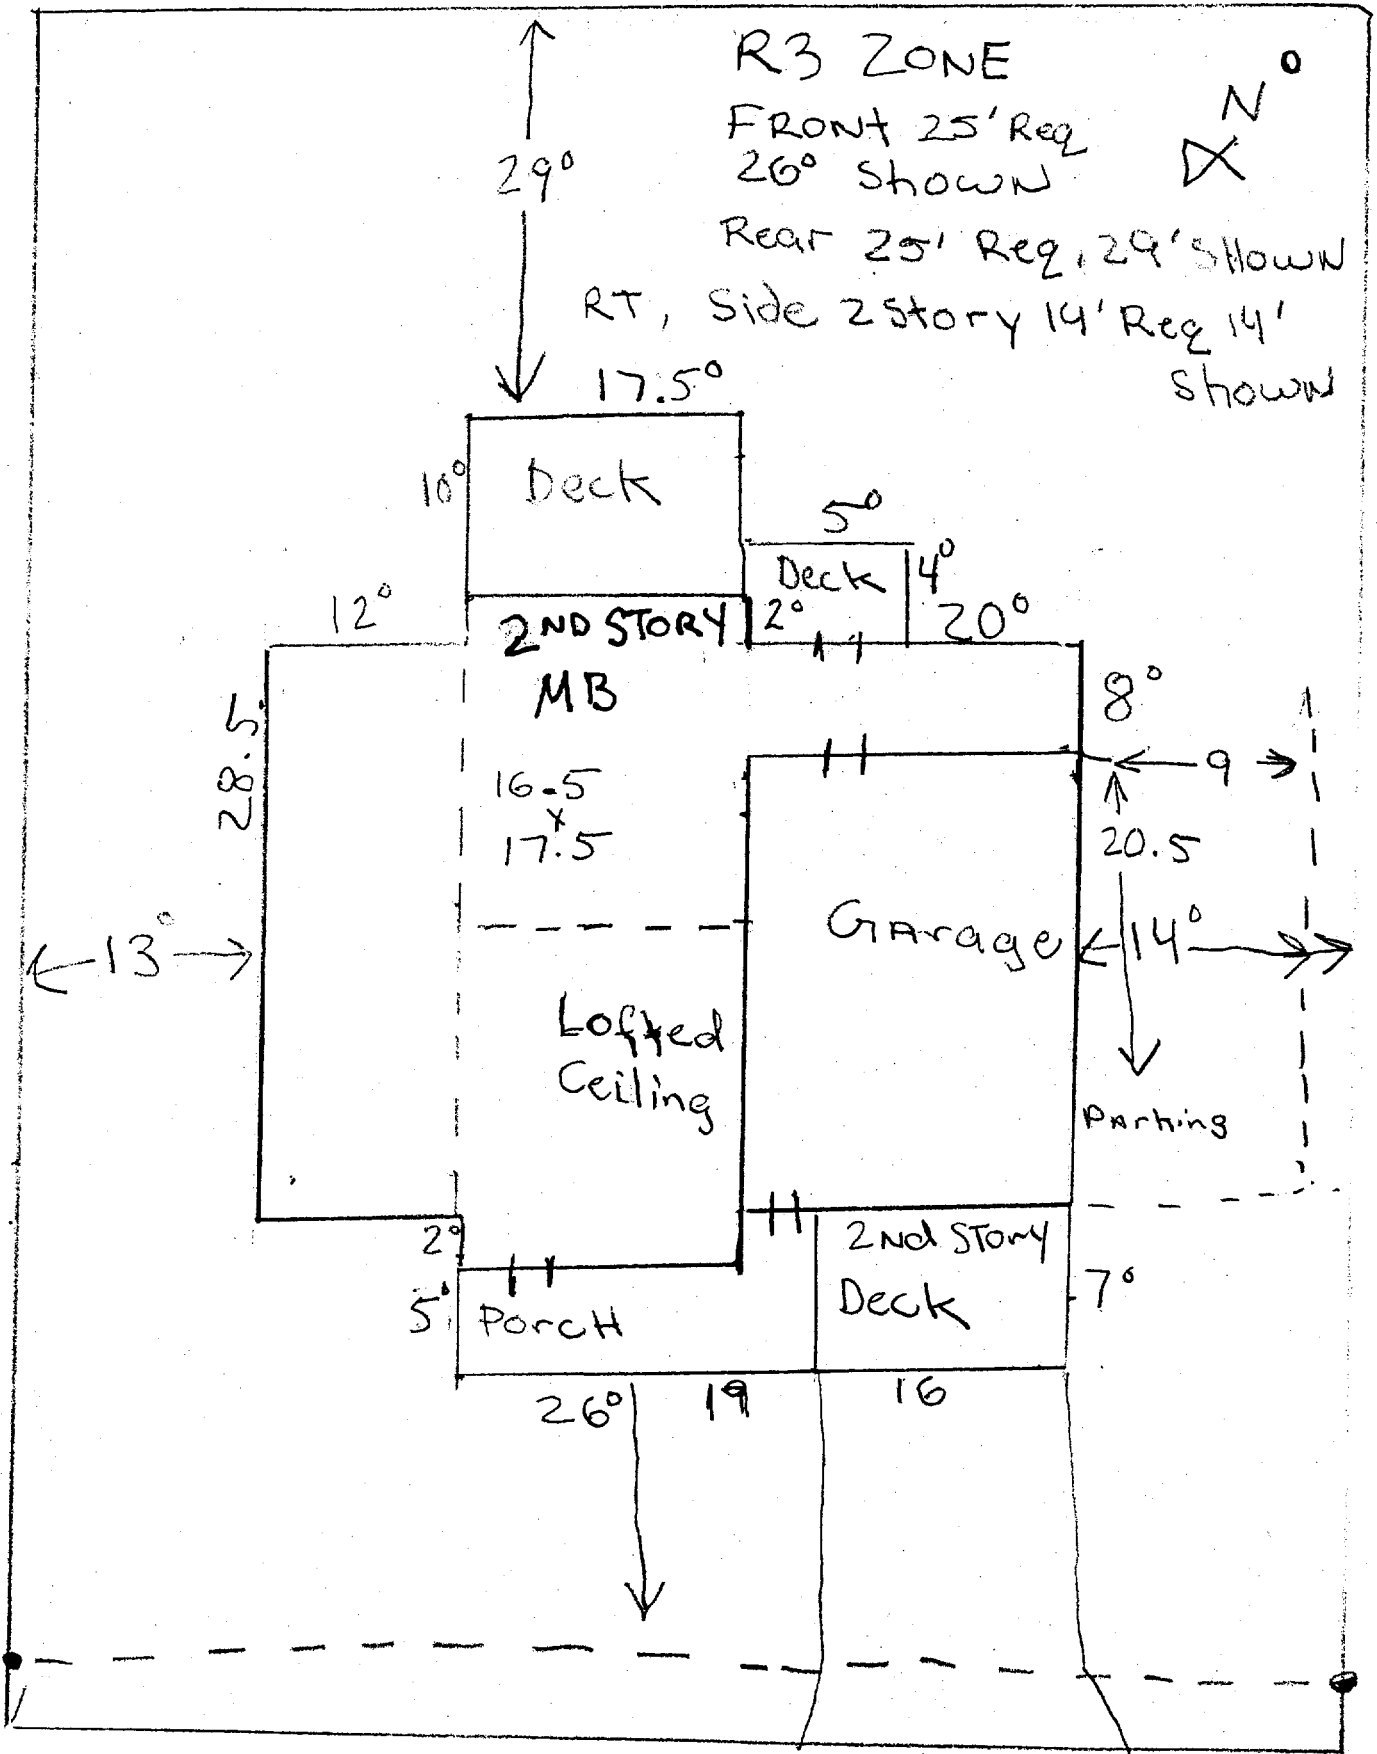 R3 ZONE
N
FRONT 25' Req
26° Shown
29°
Rear 25' Req, 29' SHOWN
RT, Side 2 Story 14' Req 14'
Shown
17.5°
10°
Deck
5°
Deck
4°
12°
2ND STORY
2°
20°
MB
8°
28.5
16.5
x
17.5
9
20.5
Garage
13°
14°
Lofted
Ceiling
Parking
2°
2nd Story
5°
Porch
Deck
7°
26°
19
16